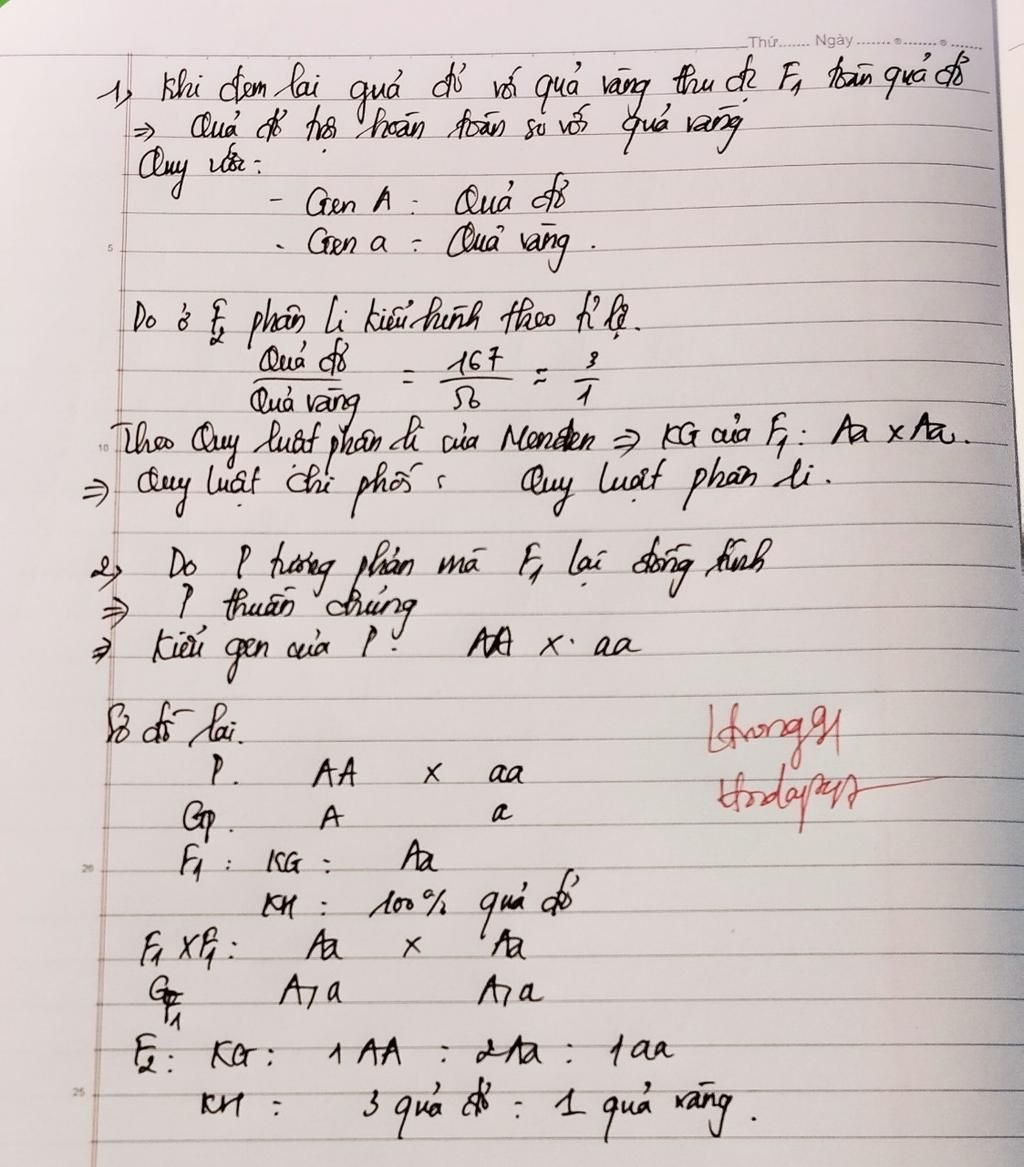 Thứ....... Ngày ....... ....... .......
1, Khi đem lai quả đỏ với quả vàng thu đc F₁ toàn quả đỏ
=> Quả đỏ trội hoàn toàn so với quả vàng
Quy ước:
- Gen A: Quả đỏ
- Gen a: Quả vàng.
5
Do ở F₂ phân li kiểu hình theo tỉ lệ.
Quả đỏ / Quả vàng = 167 / 56 ≈ 3 / 1
10 Theo Quy luật phân li của Menđen => KG của F₁: Aa x Aa.
=> Quy luật chi phối: Quy luật phân li.
2, Do P tương phản mà F₁ lại đồng tính
=> P thuần chủng
=> Kiểu gen của P: AA x aa
Sơ đồ lai.
P. AA x aa
Gp. A a
F₁: KG: Aa
20
KH: 100% quả đỏ
F₁ x F₁: Aa x Aa
G F₁ A, a A, a
F₂: KG: 1 AA : 2Aa : 1aa
25
KH: 3 quả đỏ : 1 quả vàng.